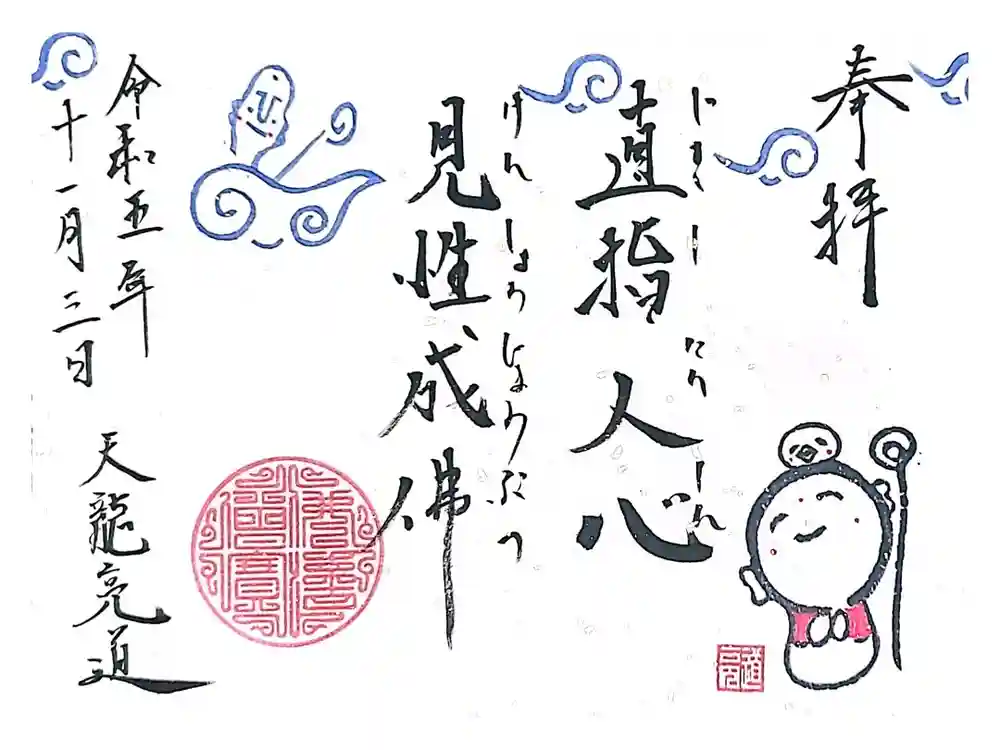 奉拝
じきし にん しん
直指人心
けん しょう じょうぶつ
見性成佛
令和五年
十一月三日
天龍亮道